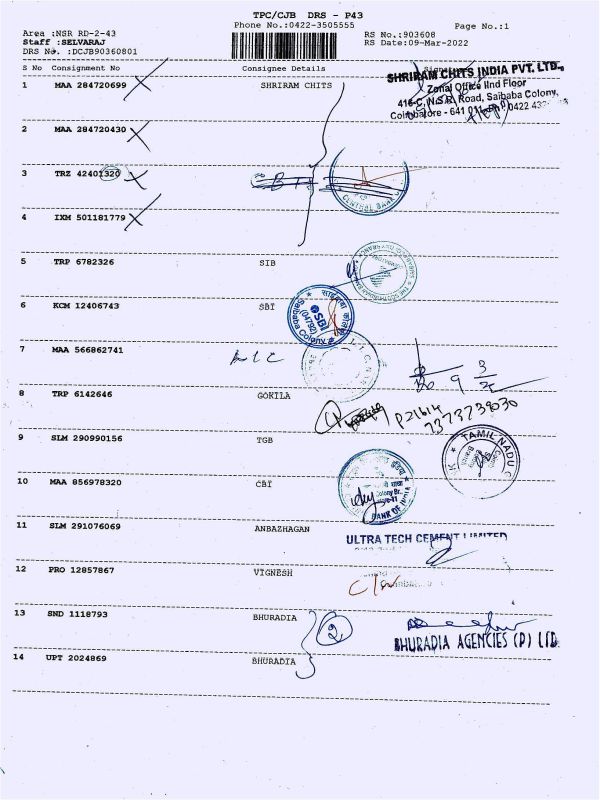 TPC/CJB DRS - P43
Phone No.:0422-3505555
Page No.:1
Area :NSR RD-2-43
Staff :SELVARAJ
DRS No. :DCJB90360801
RS No.:903608
RS Date:09-Mar-2022
S No Consignment No Consignee Details
SHRIRAM CHITS INDIA PVT. LTD.,
Zonal Office IInd Floor
416-C, N.S.R. Road, Saibaba Colony,
Coimbatore - 641 011. Ph: 0422
1 MAA 284720699 SHRIRAM CHITS
2 MAA 284720430
3 TRZ 42401320
CENTRAL BANK
4 IXM 501181779
5 TRP 6782326 SIB
6 KCM 12406743 SBI
SBI
(04792)
Saibaba Colony
7 MAA 566862741 LIC
9 3
8 TRP 6142646 GOKILA
P21614
7373739030
9 SLM 290990156 TGB
TAMIL NADU
10 MAA 856978320 CBI
BANK OF INDIA
11 SLM 291076069 ANBAZHAGAN
ULTRA TECH CEMENT LIMITED
12 PRO 12857867 VIGNESH
13 SND 1118793 BHURADIA
2
BHURADIA AGENCIES (P) LTD.
14 UPT 2024869 BHURADIA